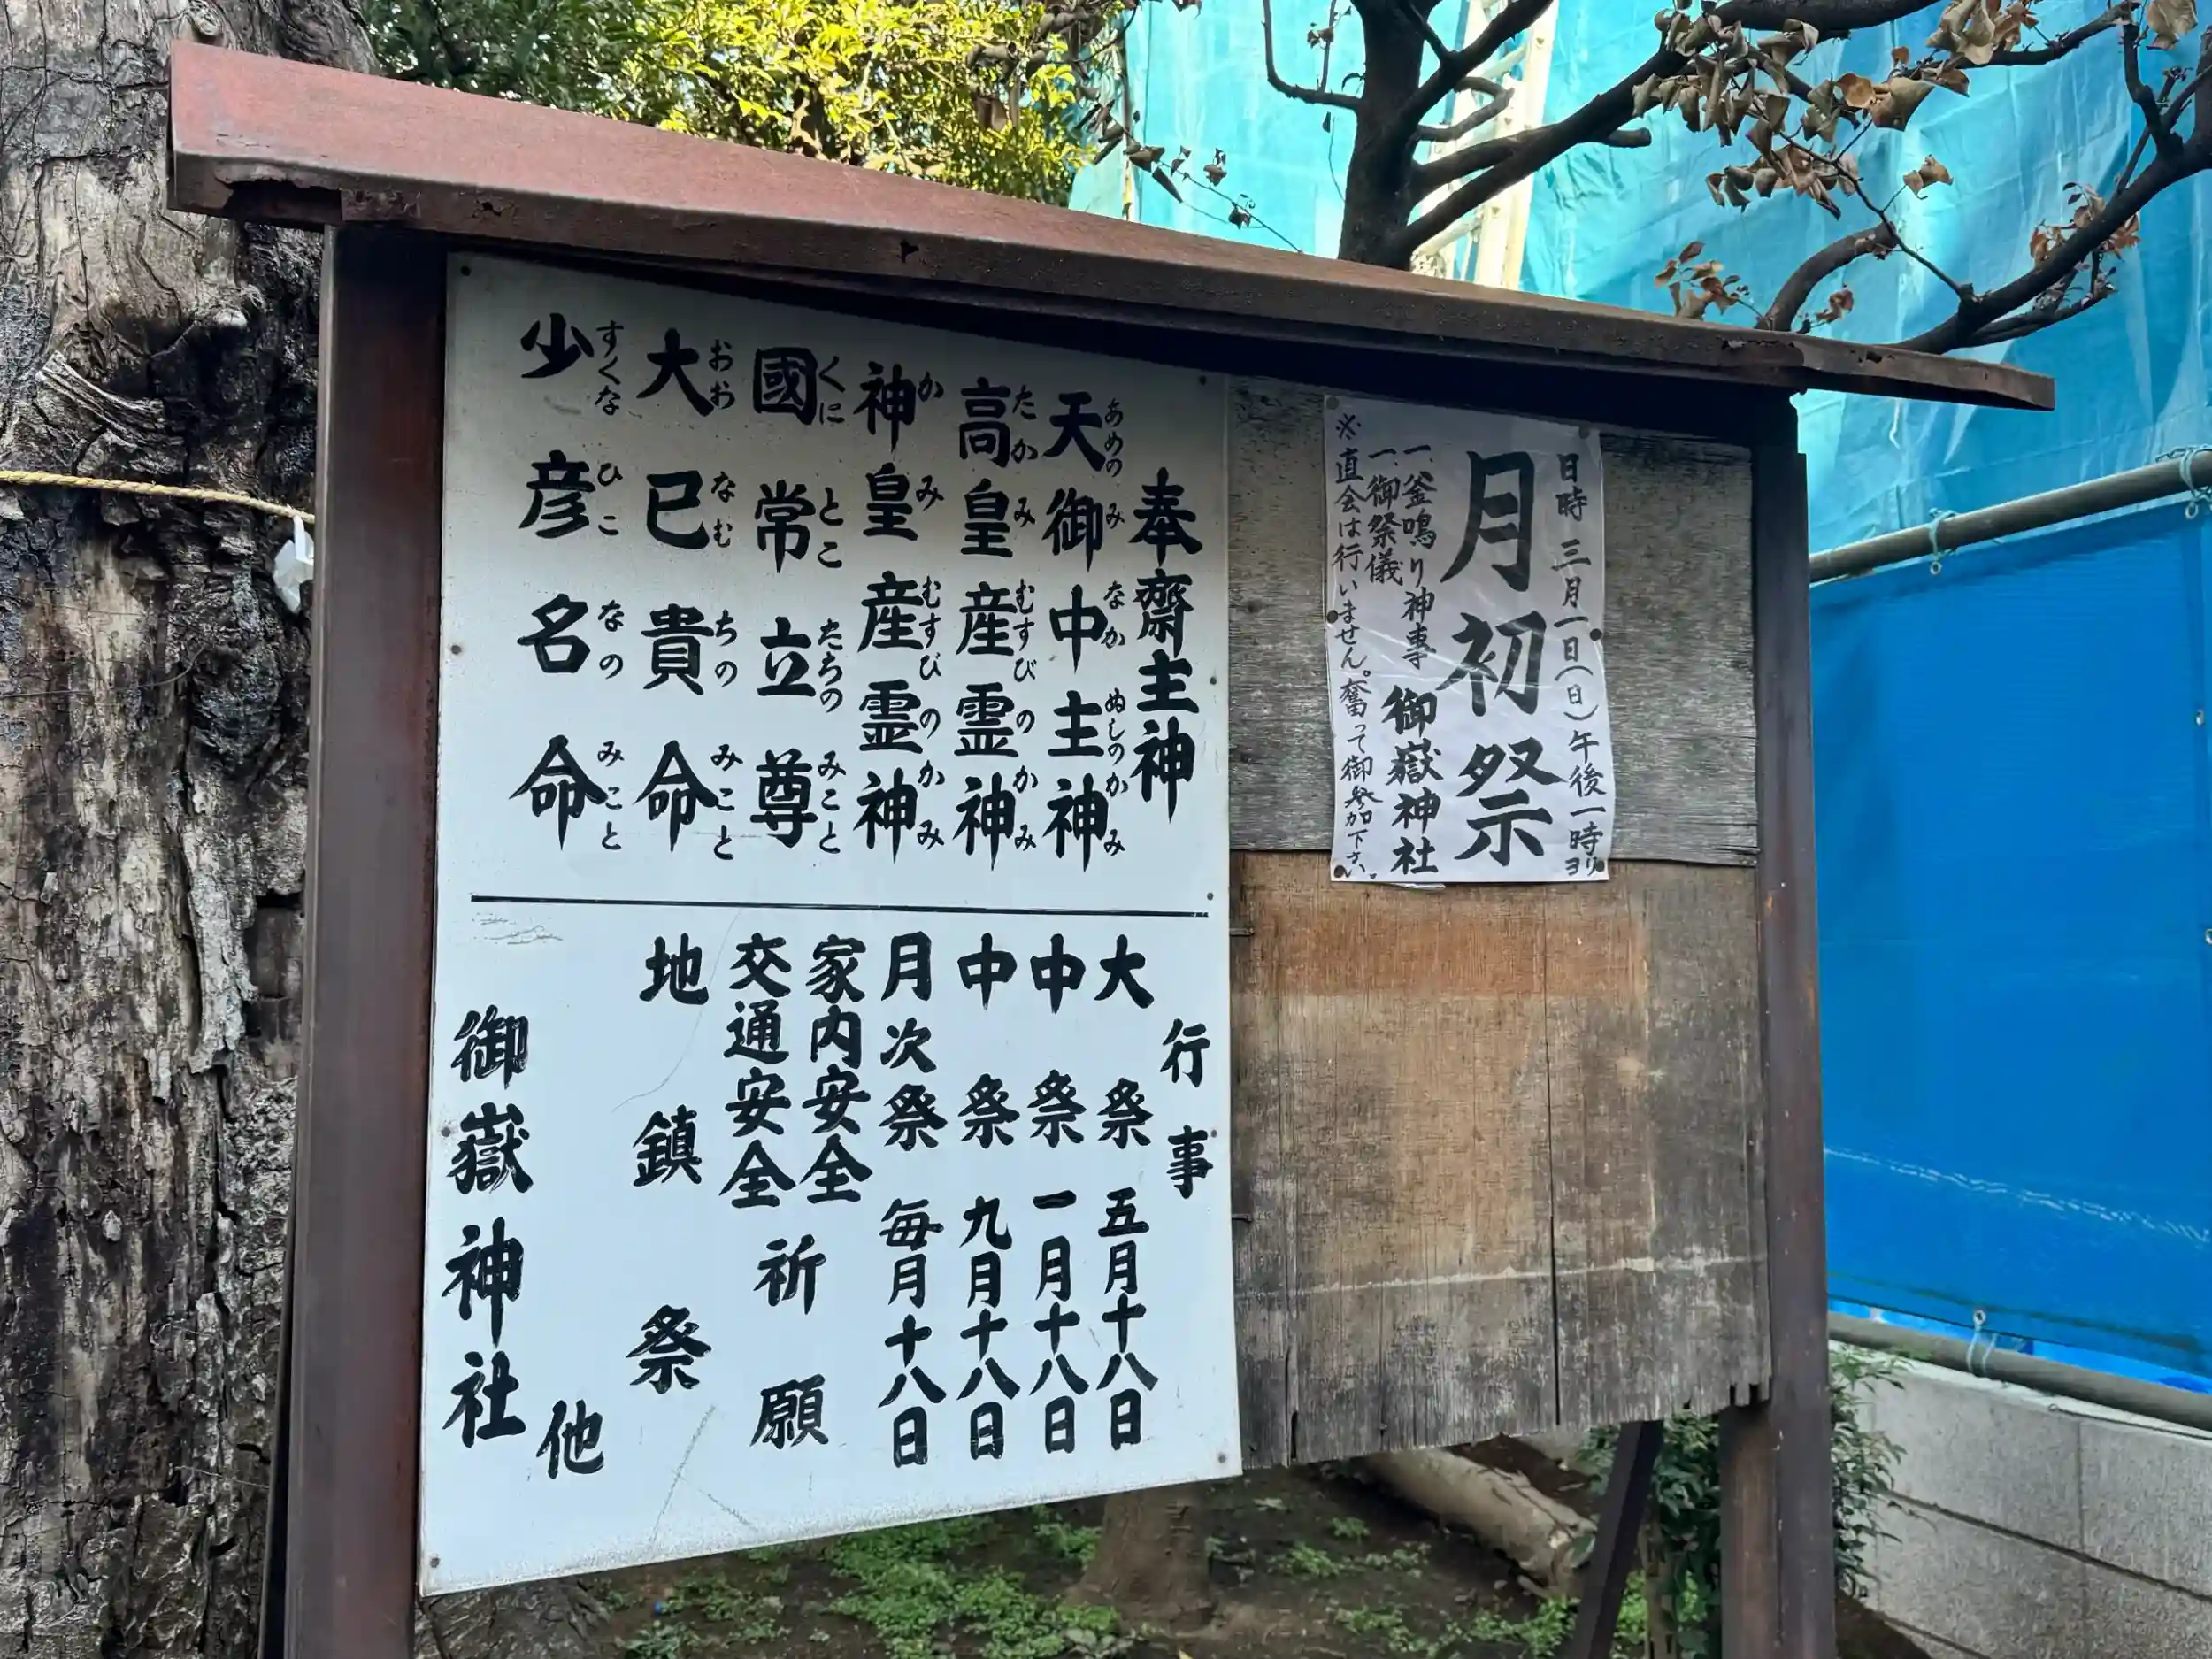 日時 三月一日(日)午後一時ヨリ
月初祭
一、釜鳴り神事
一、御祭儀
御嶽神社
※直会は行いません。奮って御参加下さい。
奉齋主神
天御中主神
あめのみなかぬしのかみ
高皇産霊神
たかみむすびのかみ
神皇産霊神
かみむすびのかみ
國常立尊
くにとこたちのみこと
大已貴命
おおなむちのみこと
少彦名命
すくなひこなのみこと
行事
大祭 五月十八日
中祭 一月十八日
中祭 九月十八日
月次祭 毎月十八日
家内安全
交通安全
祈願
地鎮祭
他
御嶽神社